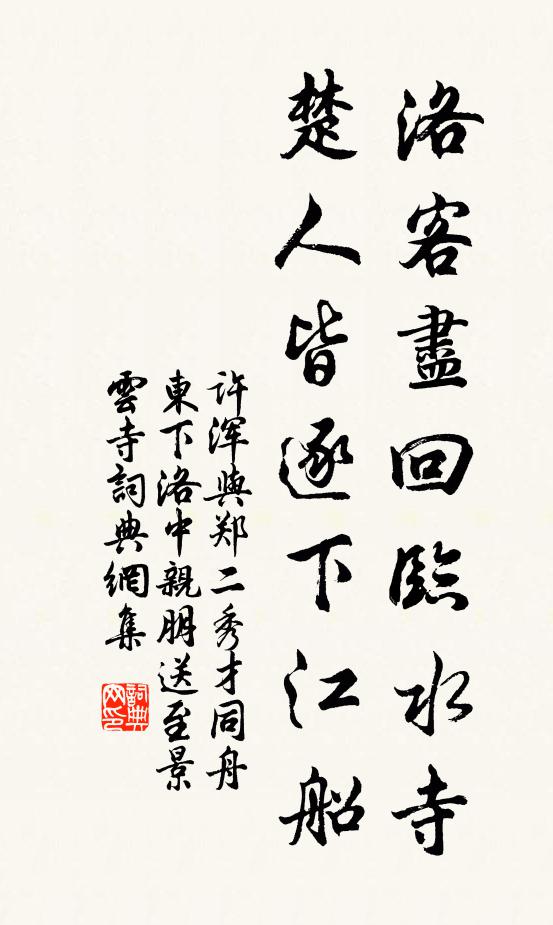 洛客盡回臨水寺
楚人皆逐下江船
许浑與郑二秀才同舟
東下洛中親朋送至景
雲寺詞典網集
詞典
网印